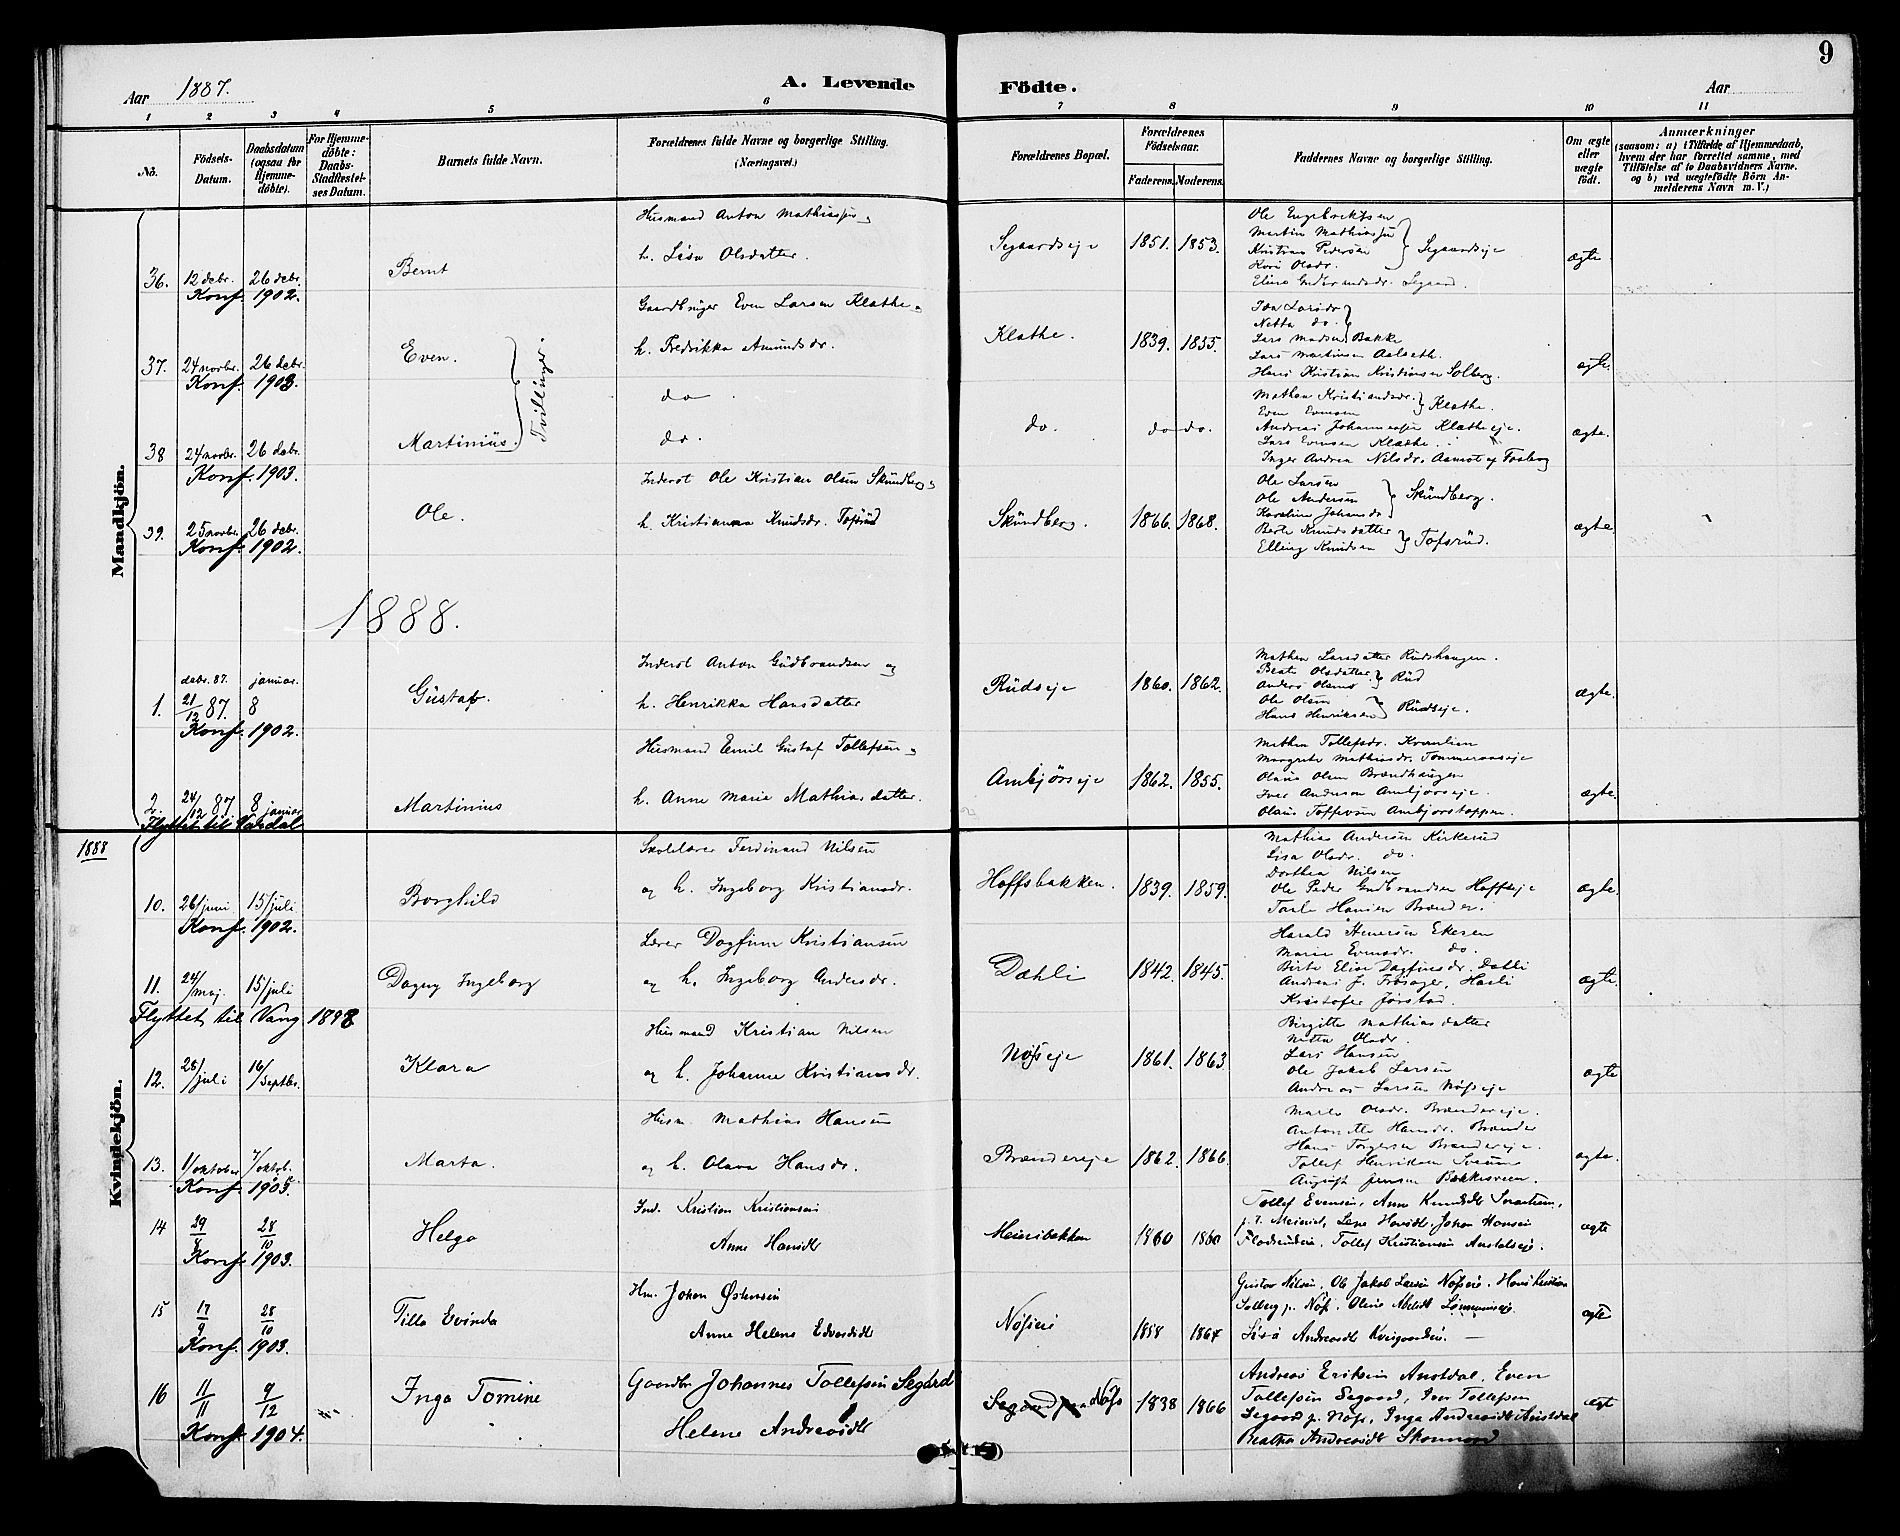 9
Aar 1887.
A. Levende Födte.
Aar
1 2 3 4 5 6 7 8 9 10 11
No.
Födsels-Datum.
Daabsdatum (ogsaa for Hjemme-döbte).
For Hjemme-döbte: Daabs-Stadfæstel-ses Datum.
Barnets fulde Navn.
Forældrenes fulde Navne og borgerlige Stilling. (Næringsvei.)
Forældrenes Bopæl.
Forældrenes Födselsaar.
Faderens. Moderens.
Faddernes Navne og borgerlige Stilling.
Om ægte eller uægte födt.
Anmærkninger
(saasom: a) i Tilfælde af Hjemmedaab, hvem der har forrettet samme, med Tilföielse af to Daabsvidners Navne. og b) ved uægtefödte Börn An-melderens Navn m. V.)
Mandkjön.
36. 12 debr. 26 debr. Bernt
Konf. 1902.
Husmand Anton Mathiassen og
h. Lisa Olsdatter.
Segaardseje 1851. 1853.
Ole Engebretsen
Martin Mathiassen
Kristian Pedersen
Kari Olsdr.
Segaardseje
Eline Gudbrandsdr. Segaard.
ægte.
37. 24 novbr. 26 debr. Even.
Konf. 1903.
Tvillinger.
Gaardbruger Even Larsen Klæthe og
h. Fredrikka Amundsdr.
Klæthe. 1839. 1855.
Netta do.
Lars Madsen Bakke
Lars Martinsen Aalseth.
Hans Kristian Kristiansen Solberg.
ægte.
38 24 novbr. 26 debr. Martinius.
Konf. 1903.
do
do.
do. do do.
Mathea Kristiansdr.
Even Evensen
Klæthe.
Andreas Johannessen Klætheeje.
Lars Evensen Klæthe.
Inger Andrea Nilsdr. Aamot
ægte.
39. 25 novbr. 26 debr. Ole.
Konf. 1902.
Inderst Ole Kristian Olsen Skundberg og
h. Kristianna Knudsdr. Tofsrud
Skundberg. 1866. 1868.
Ole Larsen
Ole Andersen
Karoline Johansdr
Skundberg.
Berte Knudsdatter
Elling Knudsen
Tofsrud.
ægte.
1888.
debr. 87. januar.
1. 21/12 87. 8 Gustaf.
Konf. 1902.
Inderst Anton Gudbrandsen og
h. Henrikka Hansdatter
Rudseje 1860. 1862.
Mathea Larsdatter Rudshaugen.
Beate Olsdatter
Anders Olsen
Rud
Ole Olsen
Hans Henriksen
Rudseje.
ægte.
2. 24/12 87. 8 januar Martinius
Flyttet til
Husmand Emil Gustaf Tollefsen og
h. Anne Marie Mathiasdatter.
Ambjörseje 1862. 1855.
Mathea Tollefsdr. Kvernlien
Margrete Mathiasdr. Tommeraaseje
Olaus Olsen Brændhaugen
Iver Andersen Ambjörseje.
Olaus Ambjörstoppen.
ægte.
Kvindekjön.
1888
10. 26/juni 15/juli Borghild
Konf. 1902.
Skolelærer Ferdinand Nilsen
og h. Ingeborg Kristiansdr.
Hoffsbakken. 1839. 1859.
Mathias Andersen Kirkerud
Lisa Olsdr. do.
Dorthea Nilsen
Ole Peder Gudbrandsen Hoffseje
Hansen Brænder.
ægte.
11. 24/maj. 15/juli Dagny Ingeborg
Flyttet til Vang 1898
Lærer Dagfinn Kristiansen
og h. Ingeborg Andersdr.
Dæhli 1842. 1845.
Harald Ekeren
Marie Evensdr. do.
Birte Elise Dagfinsdr. Dæhli
Andreas J. Frösager, Hasli
Kristofer Jörstad.
ægte.
12. 28/juli 16/septbr. Klara
Husmand Kristian Nilsen
og h. Johanne Kristiansdr.
Nøfseje 1861. 1863
Birgitte Mathiasdatter
Netta Olsdr.
Lars Hansen
Ole Jakob Larsen
Andreas Larsen Nøfseje
ægte
13. 1/oktober 7/oktob. Marta.
Konf. 1905.
Husm. Mathias Hansen
og h. Olava Hansdr.
Brændereje 1862. 1866.
Maren Olsdr. Brændereje.
Antonette Hansdr. Brænder
Hans Torgersen Brændereje.
Tollef Henriksen Sveum
August Jensen Bakkesveen.
ægte.
14 29/8 28/10 Helga
Konf. 1903.
Ind. Kristian Kristiansen
Anne Hansdtr
Meieribakken 1860 1860
Tollef Evensen, Anne Knudsdtr
p. t. Meieriet, Lene Hansdtr, Johan Hansen
Tollef Kristiansen Austdalseje.
ægte
15 17/9 28/10 Tilla Evinda
Konf. 1903.
Hm. Johan Østensen
Anne Helene Edvardsdtr
Nøfseie 1858 1864
Gustav Nilsen, Ole Jakob Larsen Nøfseie. Hans Kristian
Solberg p. Nøfs. Oline
Lisa Andreasdtr
ægte
16 11/11 9/12 Inga Tomine
Konf. 1904.
Gaardbr Johannes Tollefsen Segård
Helene Andreasdtr
Segaard Nøfs 1838 1866
Andreas Eriksen Austdal, Even
Tollefsen Segaard, Iver Tollefsen
Segaard p. Nøfs, Inga Andreasdtr Austdal
Beathe Andreasdtr Skonnord
ægt